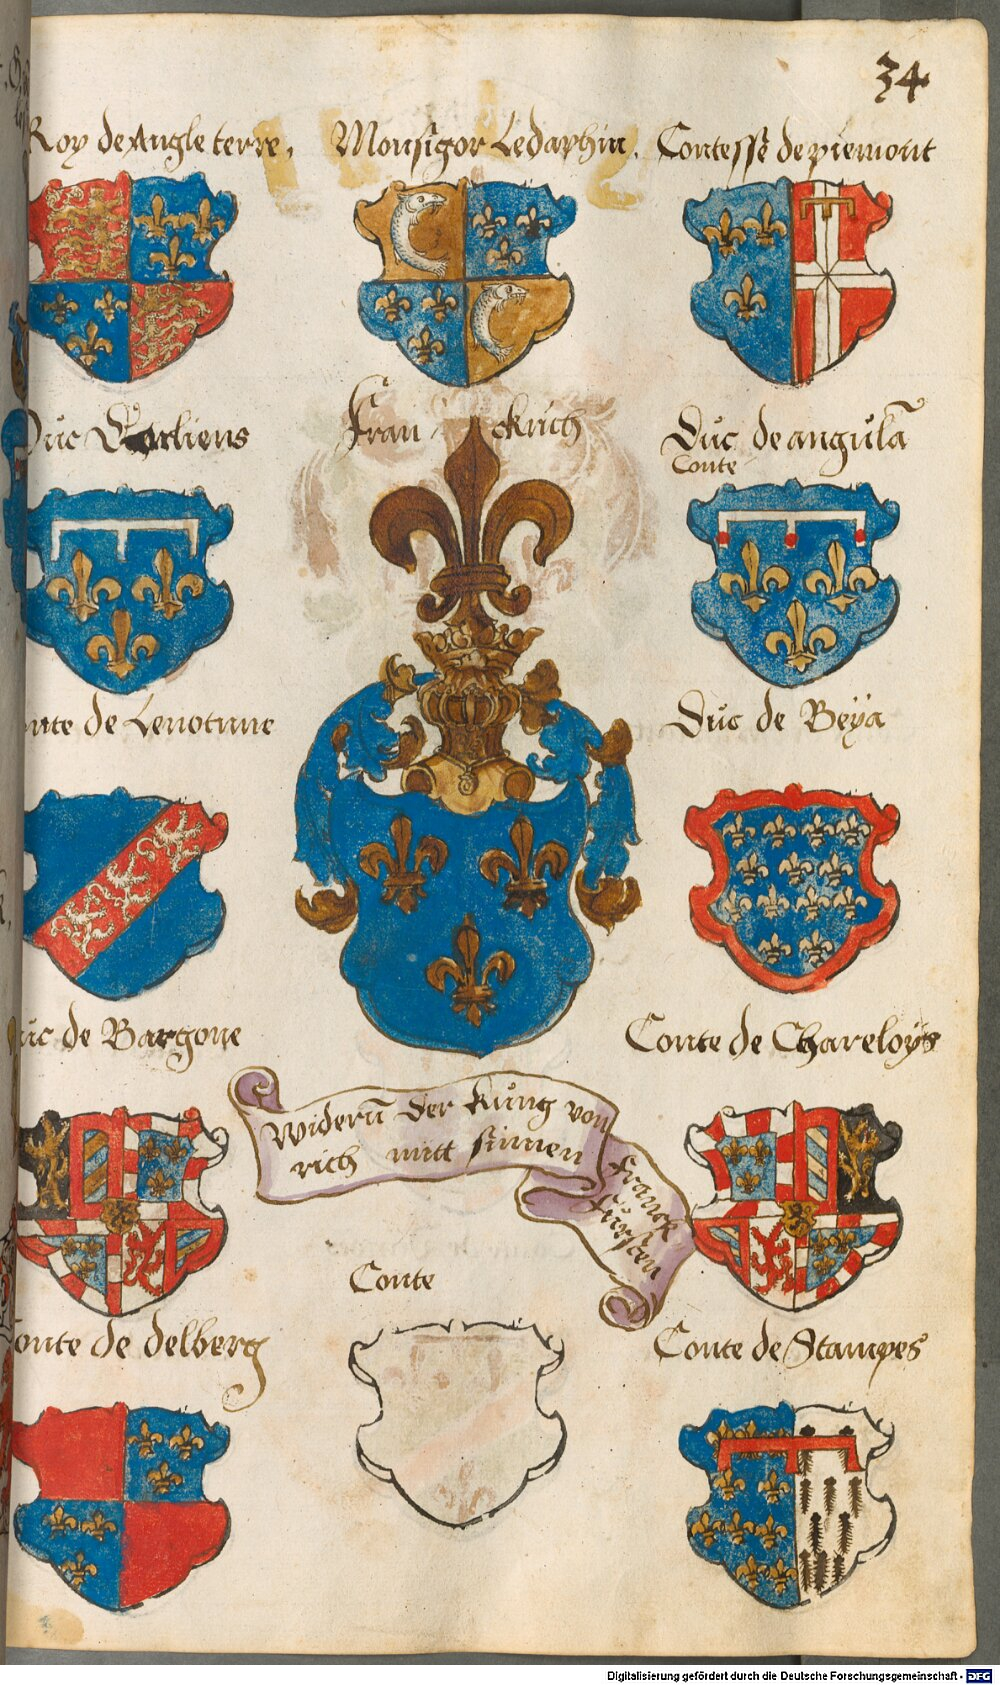 34
Roy de Angleterre. Monsigor Ledaphin. Contesse de piemont
Duc Dorliens Franckrich Duc de angula
Conte
nte de Lenotune Duc de Beya
uc de Bargone Conte de Chareloys
Widerū der Kung von
rich mitt sinen
Franck
fürsten
Conte
onte de delberg Conte de Stampes
Digitalisierung gefördert durch die Deutsche Forschungsgemeinschaft - DFG